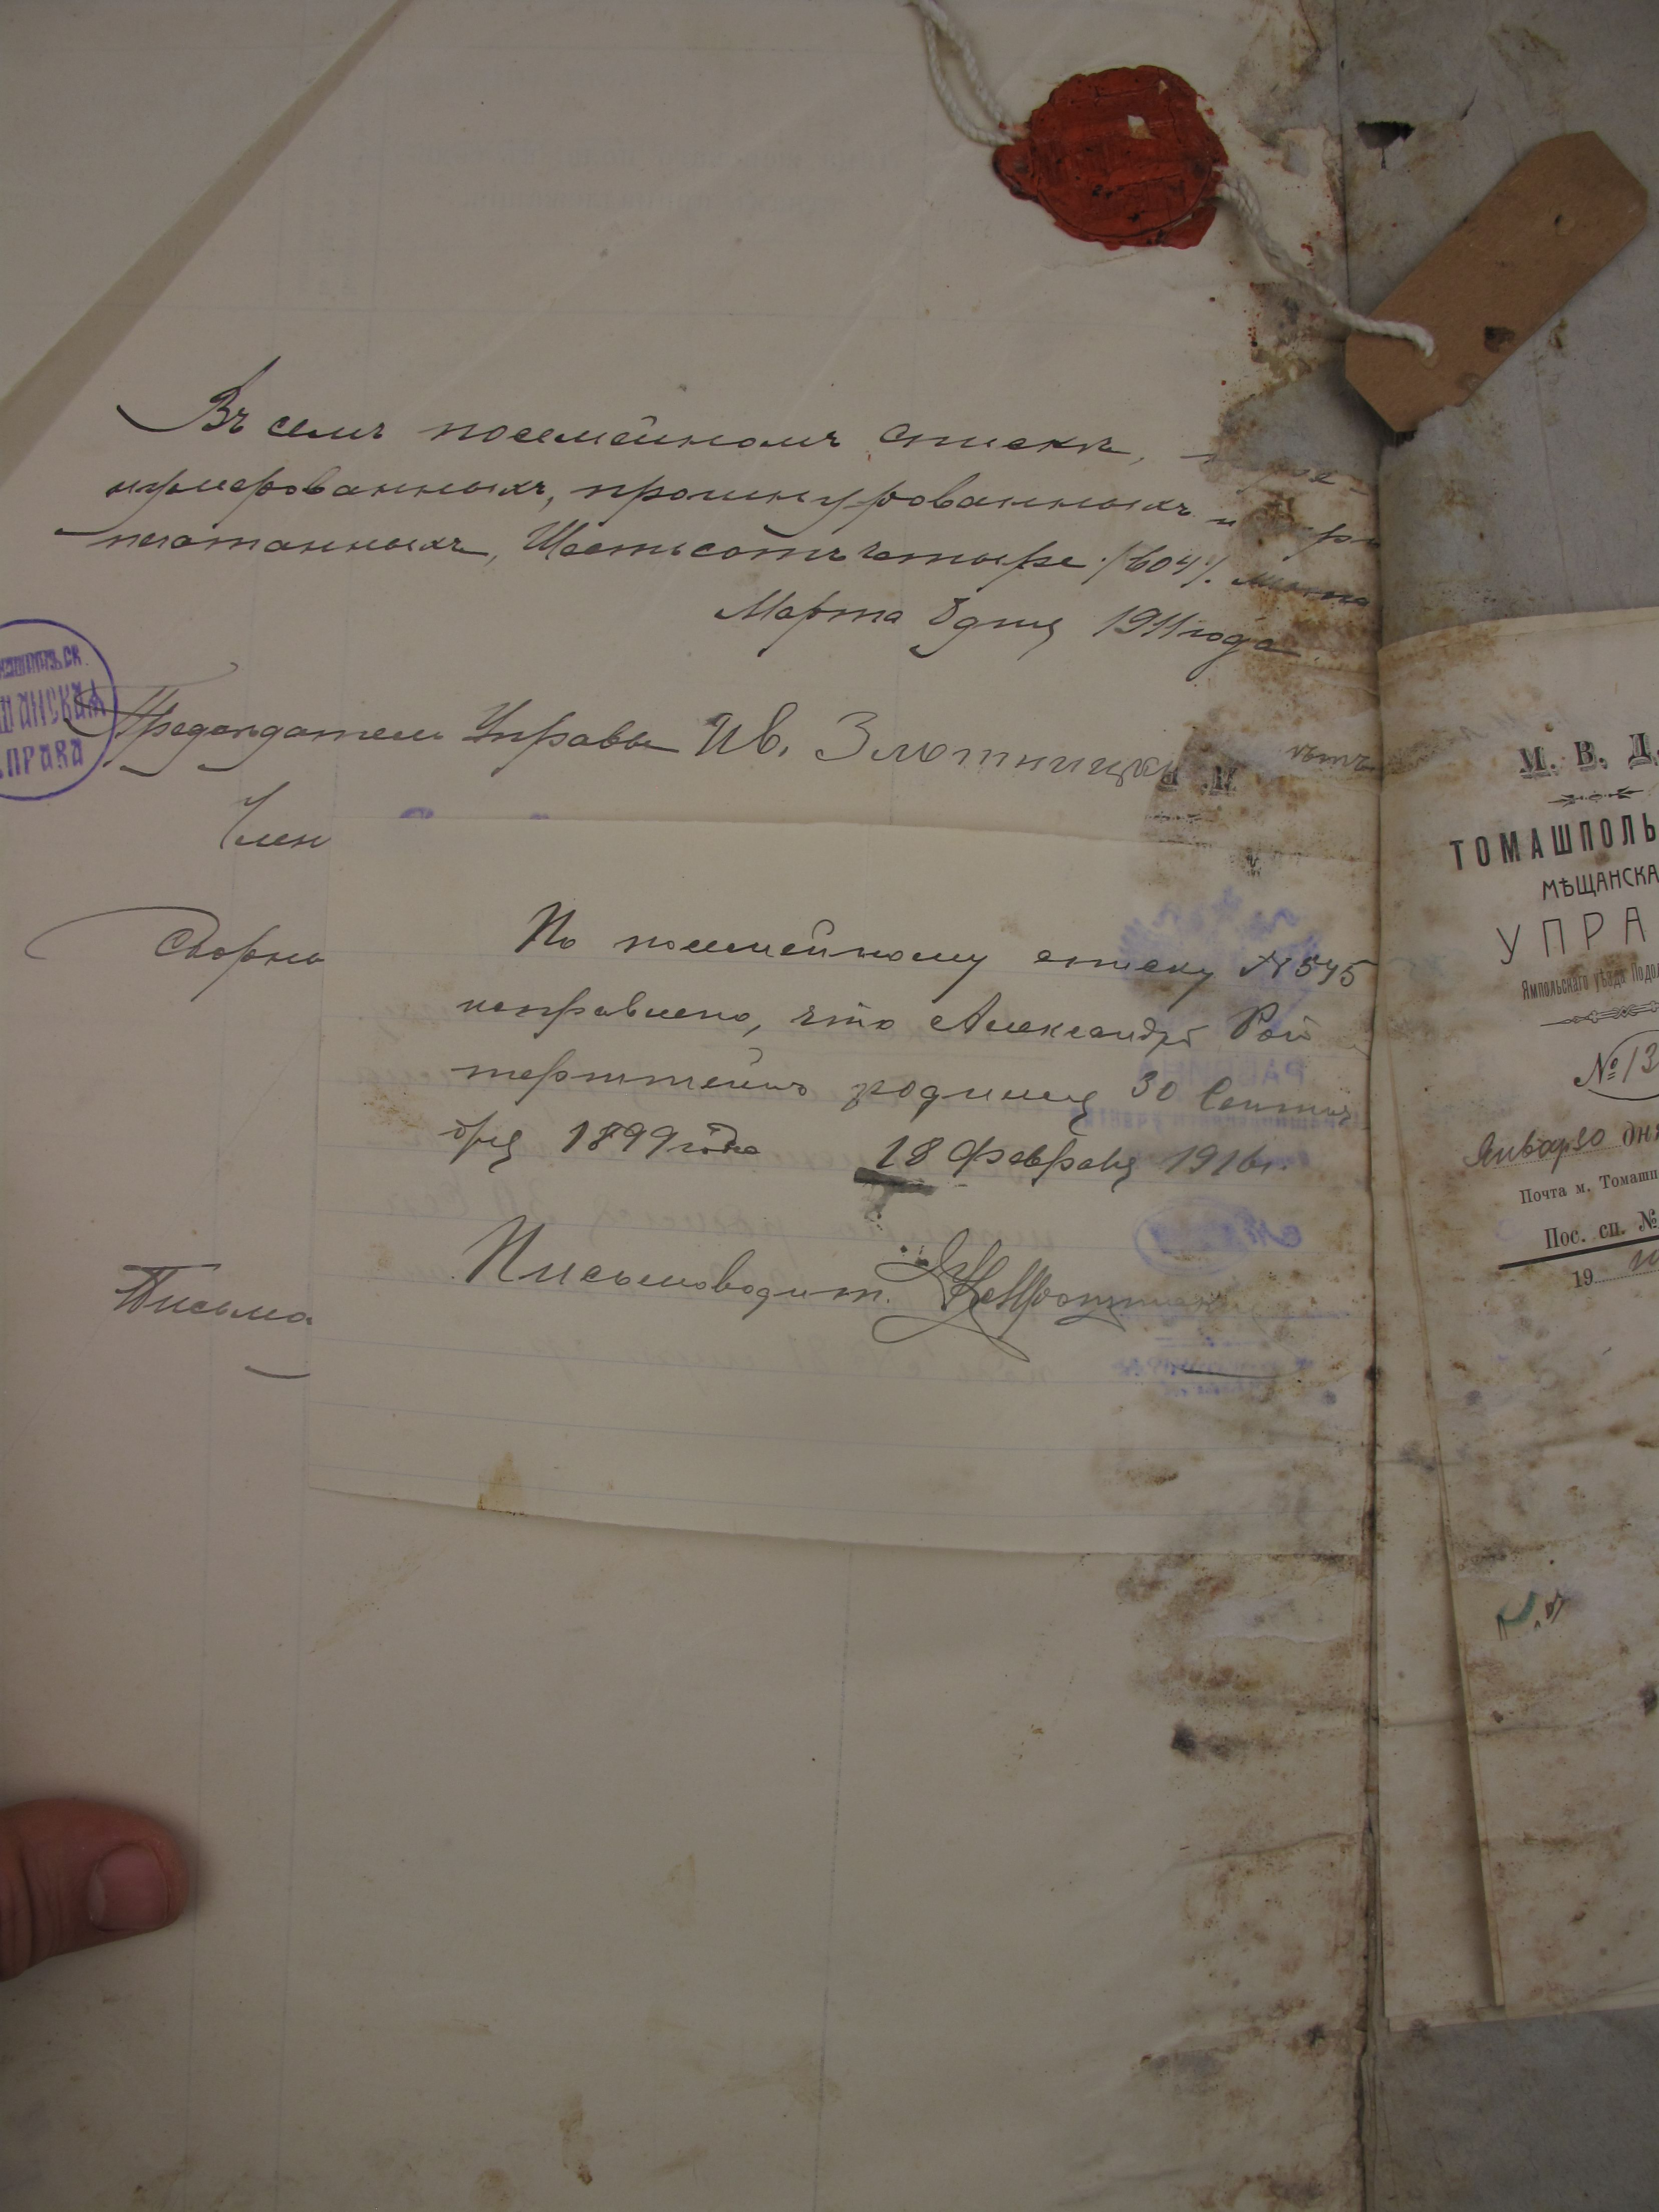 Въ семъ посемейномъ списке,
нумерованныхъ, прошнурованныхъ и
печатанныхъ, Шестьсотъ четыре /604/. листа
Марта 8 дня 1911 года.
ШАНСКАЯ
ПРАВА
Председатель Управы Ив. Злотницкий
Член
Сборщ
По посемейному списку № 545
исправлено, что Александръ Рой
терштейнъ родился 30 Сентя
бря 1899 года 18 Февраля 1916 г.
Письмоводит.
Письмо
М. В. Д.
ТОМАШПОЛЬ
МѢЩАНСКА
УПРА
Ямпольскаго уѣзда Подол
№ 13
Январ 20 дня
Почта м. Томашп
Пос. сп. №
19